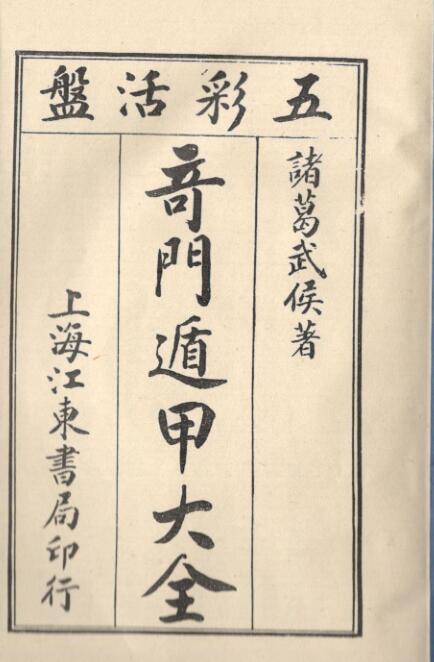 五彩活盤
諸葛武侯著
奇門遁甲大全
上海江東書局印行